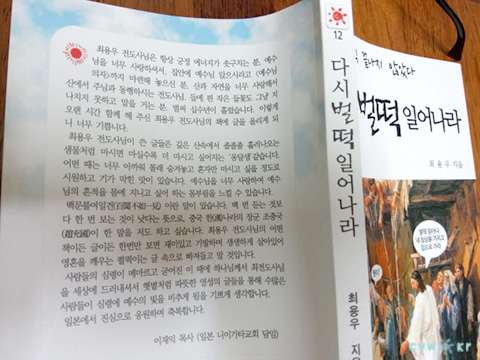 최용우 전도사님은 항상 긍정 에너지가 솟구치는 분, 예수
님을 너무 사랑하셔서, 집안에 예수님 앉으시라고 (예수님
의자)까지 마련해 놓으신 분, 산과 자연을 너무 사랑해서
산에서 주님과 동행하시는 전도사님. 들에 핀 작은 들꽃도 그냥 지
나치지 못하고 말을 거는 분. 벌써 십수년이 흘렀습니다. 이렇게
오랜 시간 함께 해 주신 최용우 전도사님의 책에 글을 올리게 되
니 너무 기쁩니다.
최용우 전도사님이 쓴 글들은 깊은 산속에서 졸졸졸 흘러나오는
샘물처럼 마시면 마실수록 더 마시고 싶어지는 '옹달샘' 같습니다.
어떤 때는 너무 아까워 몰래 숨겨놓고 혼자만 마시고 싶을 정도로
시원하고 기가 막힌 맛이 있습니다. 예수님을 너무 사랑하여 예수
님의 흔적을 몸에 지니고 싶어 하는 몸부림을 느낄 수 있습니다.
백문불여일견(百聞不如一見) 이란 말이 있습니다. 백 번 듣는 것보
다 한 번 보는 것이 낫다는 뜻으로, 중국 한(漢)나라의 장군 조충국
(趙充國)이 한 말을 저도 하고 싶습니다. 최용우 전도사님의 어떤
책이든 글이든 한편만 보면 재미있고 기발하며 생생하게 살아있어
영혼을 깨우는 펄떡이는 글 속으로 빠져들고 말 것입니다.
사람들의 심령이 메마르고 굳어진 이 때에 하나님께서 최전도사님
을 세상에 드러내셔서 햇볕처럼 따뜻한 영성의 글들을 통해 수많은
사람들이 심령에 예수의 빛을 비추게 됨을 기쁘게 생각합니다.
일본에서 진심으로 응원하며 축복합니다.
이재익 목사 (일본 니이가타교회 담임)
12
다시 벌떡 일어나라
최용우 지음
끝나지 않았다
벌떡 일어나라
최용우 지음
벌떡 일어나
네 침상을 가지고
집으로 가라